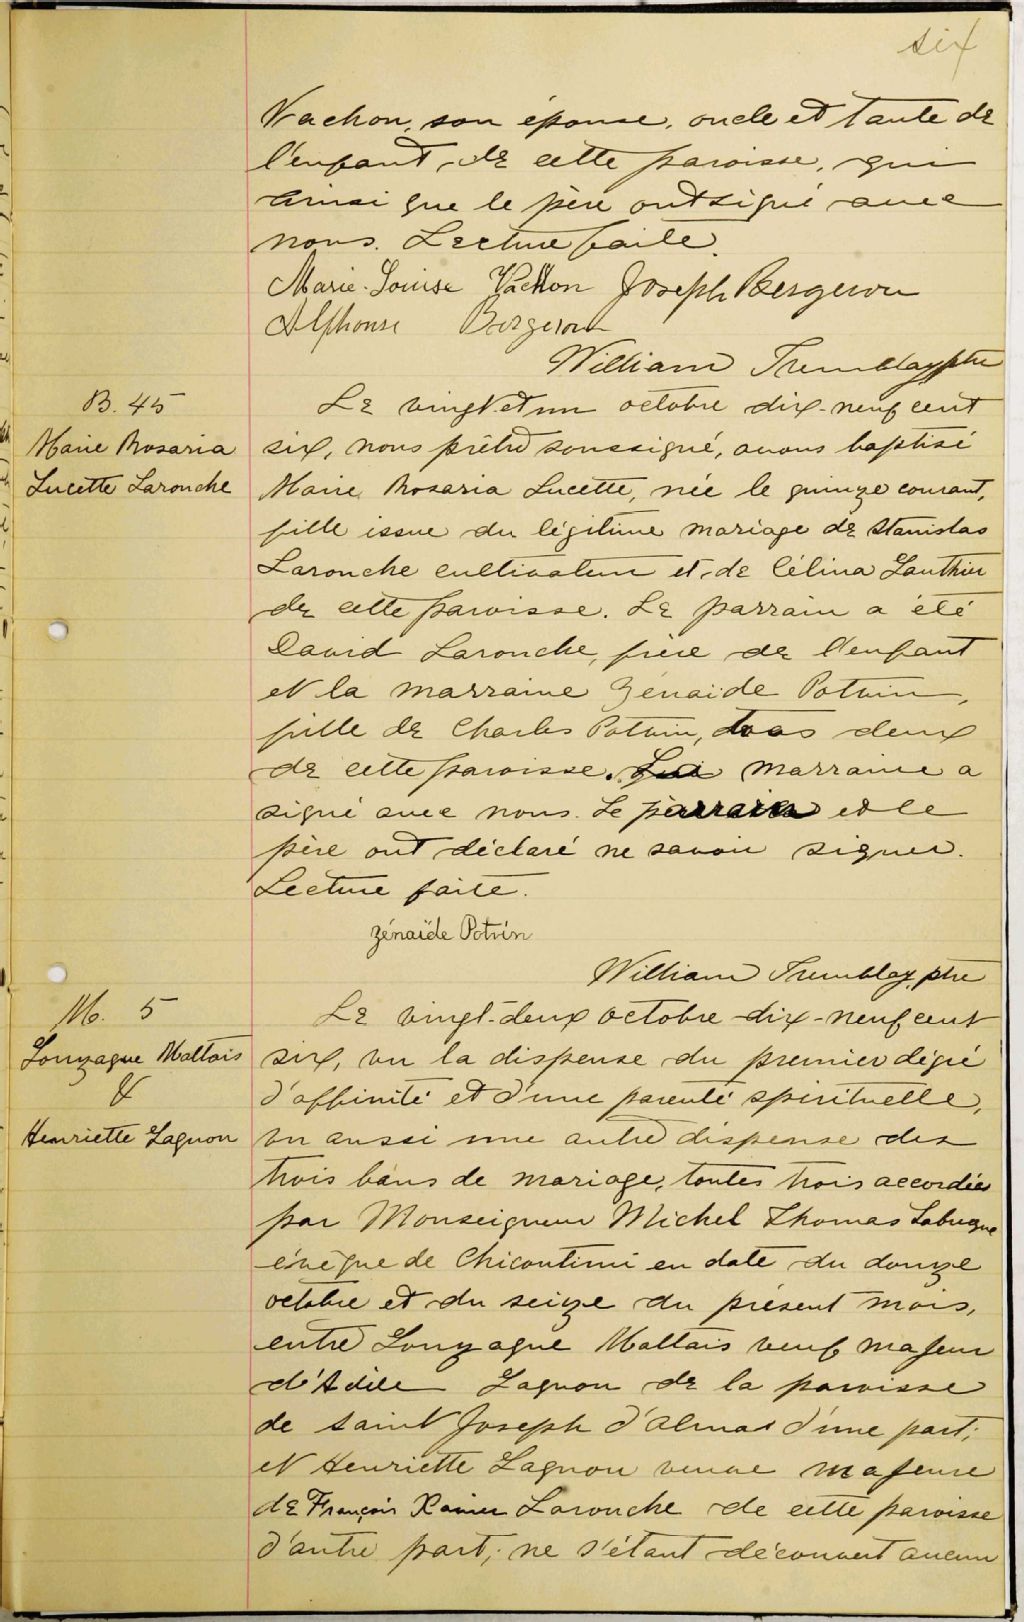 six
Vachon, son épouse, oncle et tante de
l'enfant, de cette paroisse, qui
ainsi que le père ont signé avec
nous. Lecture faite.
Marie-Louise Vachon Joseph Bergeron
Alphonse Bergeron
William Tremblay ptre
B. 45
Marie Rosaria
Lucette Larouche
Le vingt et un octobre dix-neuf cent
six, nous prêtre soussigné, avons baptisé
Marie Rosaria Lucette, née le quinze courant,
fille issue du légitime mariage de Stanislas
Larouche cultivateur et de Célina Gauthier
de cette paroisse. Le parrain a été
David Larouche, frère de l'enfant
et la marraine Zénaïde Potvin,
fille de Charles Potvin, tous deux
de cette paroisse. La marraine a
signé avec nous. Le parrain et le
père ont déclaré ne savoir signer.
Lecture faite.
Zénaïde Potvin
William Tremblay, ptre
M. 5
Gonzague Maltais
&
Henriette Gagnon
Le vingt-deux octobre dix-neuf cent
six, vu la dispense du premier dégré
d'affinité et d'une parenté spirituelle,
vu aussi une autre dispense des
trois bans de mariage, toutes trois accordées
par Monseigneur Michel Thomas Labrecque
évêque de Chicoutimi en date du douze
octobre et du seize du présent mois,
entre Gonzague Maltais veuf majeur
d'Adèle Gagnon de la paroisse
de Saint Joseph d'Alma d'une part;
et Henriette Gagnon veuve majeure
de François Xavier Larouche de cette paroisse
d'autre part; ne s'étant découvert aucun